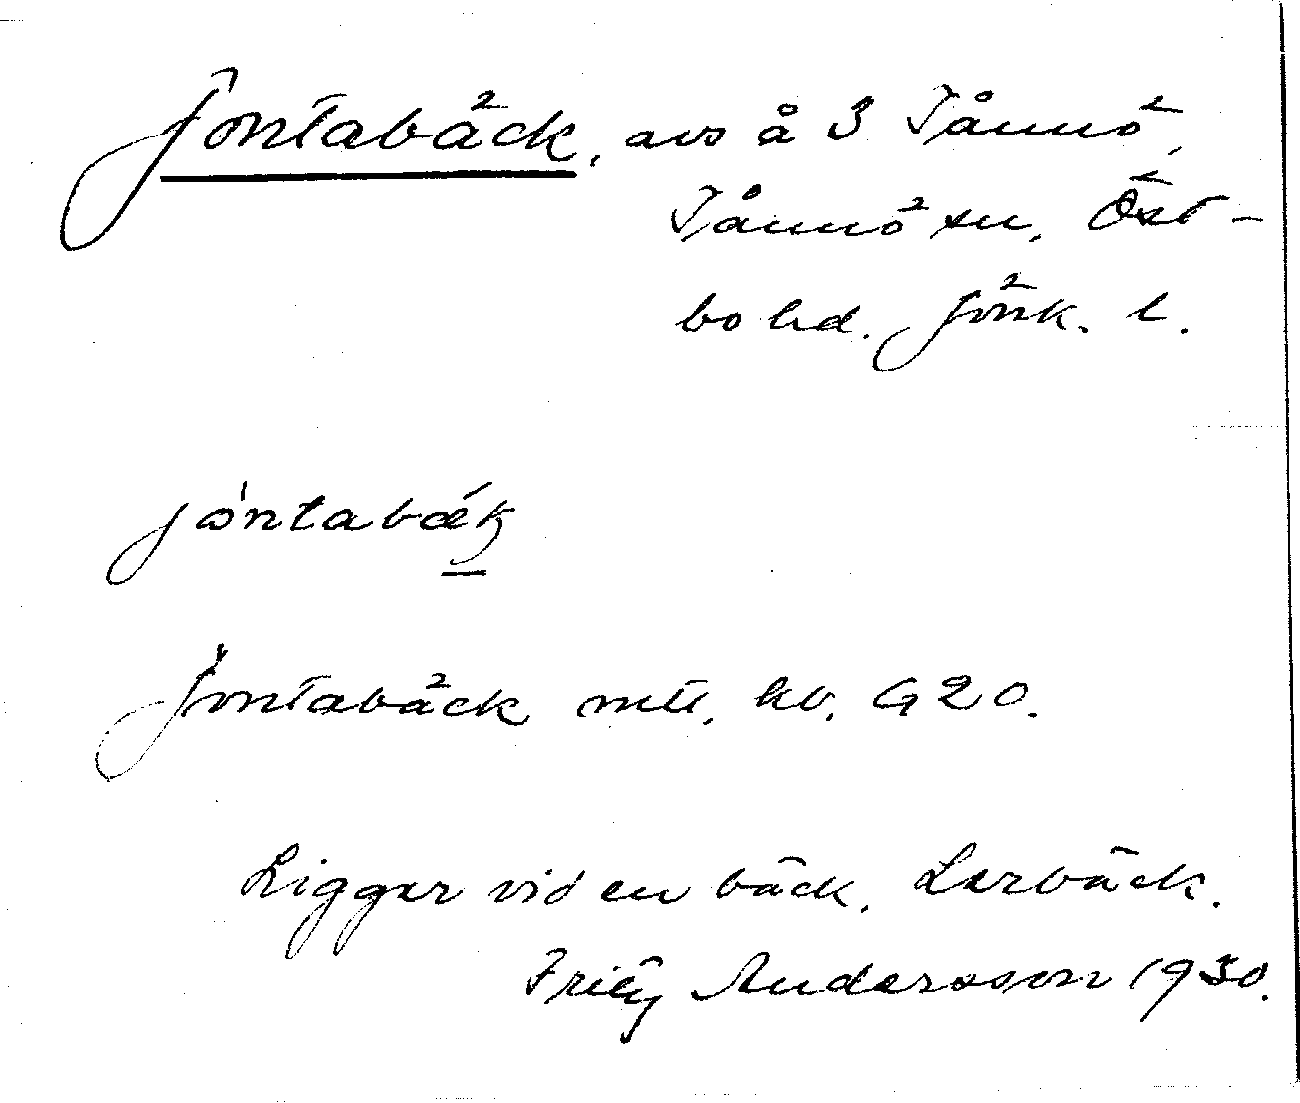 Jontabäck, avs å 3 Tånnö,
Tånnö sn, Öst-
bo hd. Jönk. l.
jòntabǽk
Jontabäck mtl. kb. G20.
Ligger vid en bäck. Lerbäck.
Fritz Andersson 1930.